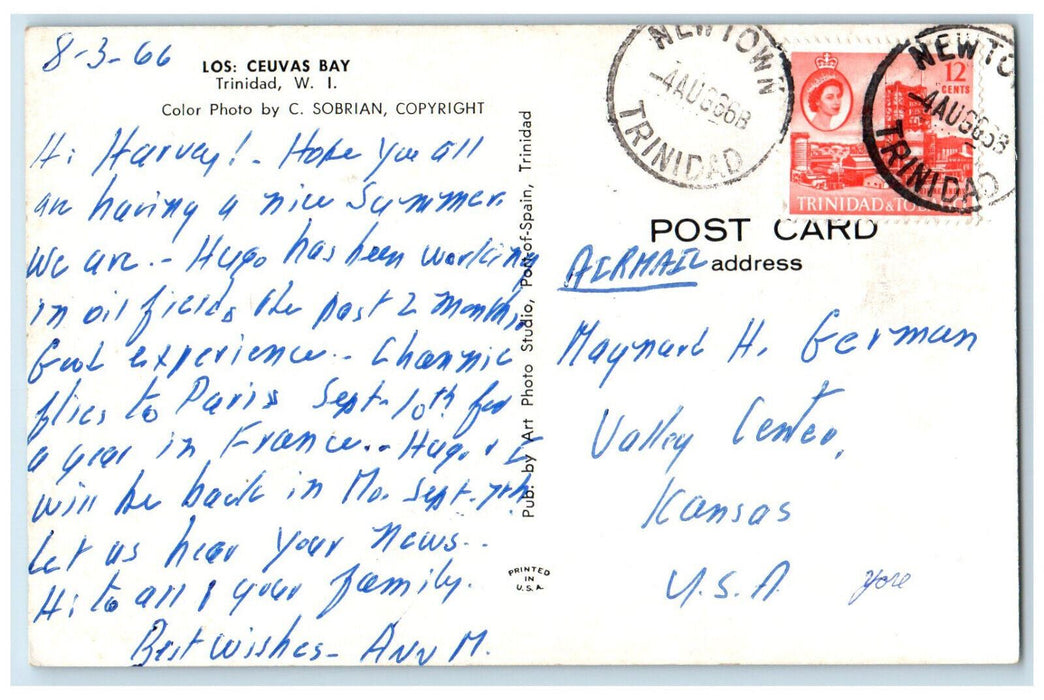 8-3-66
LOS: CEUVAS BAY
Trinidad, W. I.
Color Photo by C. SOBRIAN, COPYRIGHT
Hi Harvey! - Hope you all
are having a nice Summer.
We are. - Hugo has been working
in oil fields the past 2 months.
Good experience.. Channie
flies to Paris Sept. 10th for
a year in France.. Hugo & I
will be back in Mo. Sept. 7th.
Let us hear your news..
Hi to all your family.
Best Wishes - Ann M.
Pub. by Art Photo Studio, Port-of-Spain, Trinidad
PRINTED
IN
U.S.A.
NEWTOWN
4AUG66B
TRINIDAD
12
CENTS
TRINIDAD & TOB
NEWTO
4AUG66B
TRINIDAD
POST CARD
address
AIRMAIL
Maynard H. German
Valley Center,
Kansas
U.S.A.